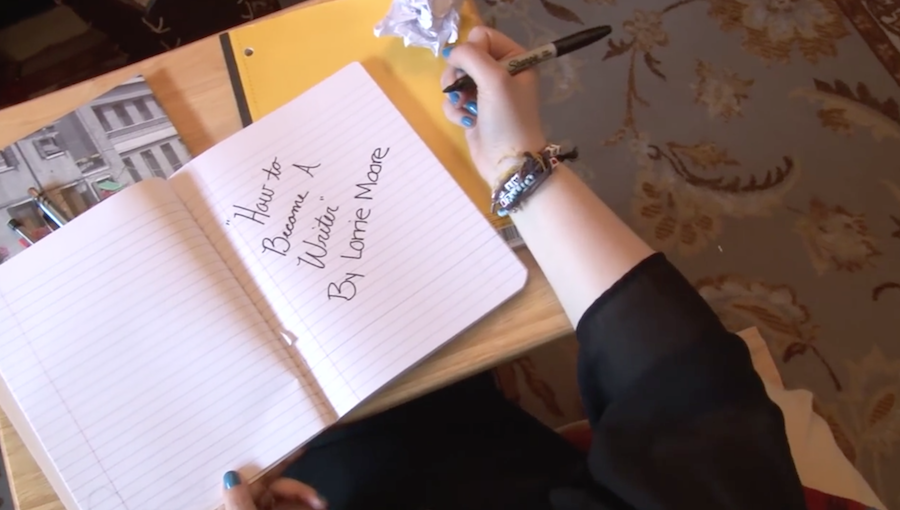 "How to
Become A
Writer"
By Lorrie Moore
Sharpie